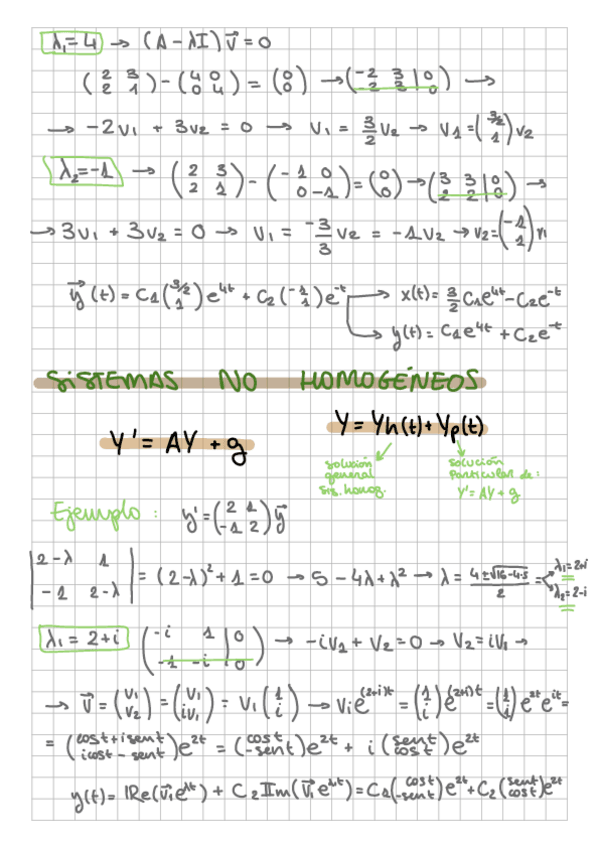 λ₁=4 → (A - λI) v⃗ = 0
(2 3; 2 1) - (4 0; 0 4) = (0; 0) → (-2 3 | 0; 2 3 | 0) →
→ -2v₁ + 3v₂ = 0 → v₁ = 3/2 v₂ → v₁ = (3/2; 1) v₂
λ₂=-1 → (2 3; 2 1) - (-1 0; 0 -1) = (0; 0) → (3 3 | 0; 2 2 | 0) →
→ 3v₁ + 3v₂ = 0 → v₁ = -3/3 v₂ = -1v₂ → v₂ = (-1; 1) v₁
y⃗(t) = C₁(3/2; 1)e^4t + C₂(-1; 1)e^-t → x(t) = 3/2 C₁e^4t - C₂e^-t
→ y(t) = C₁e^4t + C₂e^-t
SISTEMAS NO HOMOGÉNEOS
Y' = AY + g
Y = Yh(t) + Yp(t)
solución general sis. homog.
solución particular de: Y' = AY + g
Ejemplo: y' = (2 1; -1 2) y⃗
|2-λ 1; -1 2-λ| = (2-λ)² + 1 = 0 → 5 - 4λ + λ² → λ = (4 ± √16-4·5)/2 = λ₁=2+i λ₂=2-i
λ₁ = 2+i (-i 1 | 0; -1 -i | 0) → -iv₁ + v₂ = 0 → v₂ = iv₁ →
→ v⃗ = (v₁; v₂) = (v₁; iv₁) = v₁(1; i) → v₁e^(2+i)t = (1; i)e^(2+i)t = (1; i)e^2t e^it =
= (cost+isent; icost-sent)e^2t = (cost; -sent)e^2t + i(sent; cost)e^2t
y(t) = IRe(v⃗₁e^λt) + C₂ IIm(v⃗₁e^λt) = C₁(cost; -sent)e^2t + C₂(sent; cost)e^2t